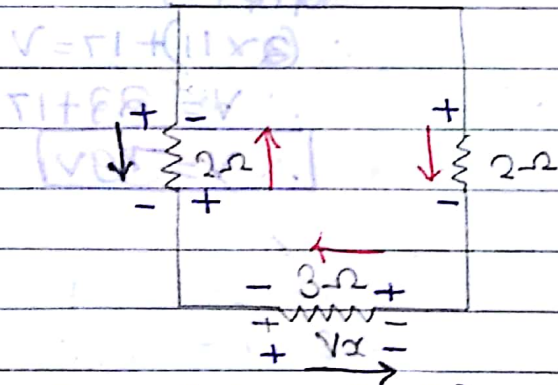 + - +
2Ω 2Ω
- + -
- 3Ω +
+ -
+ Vx -